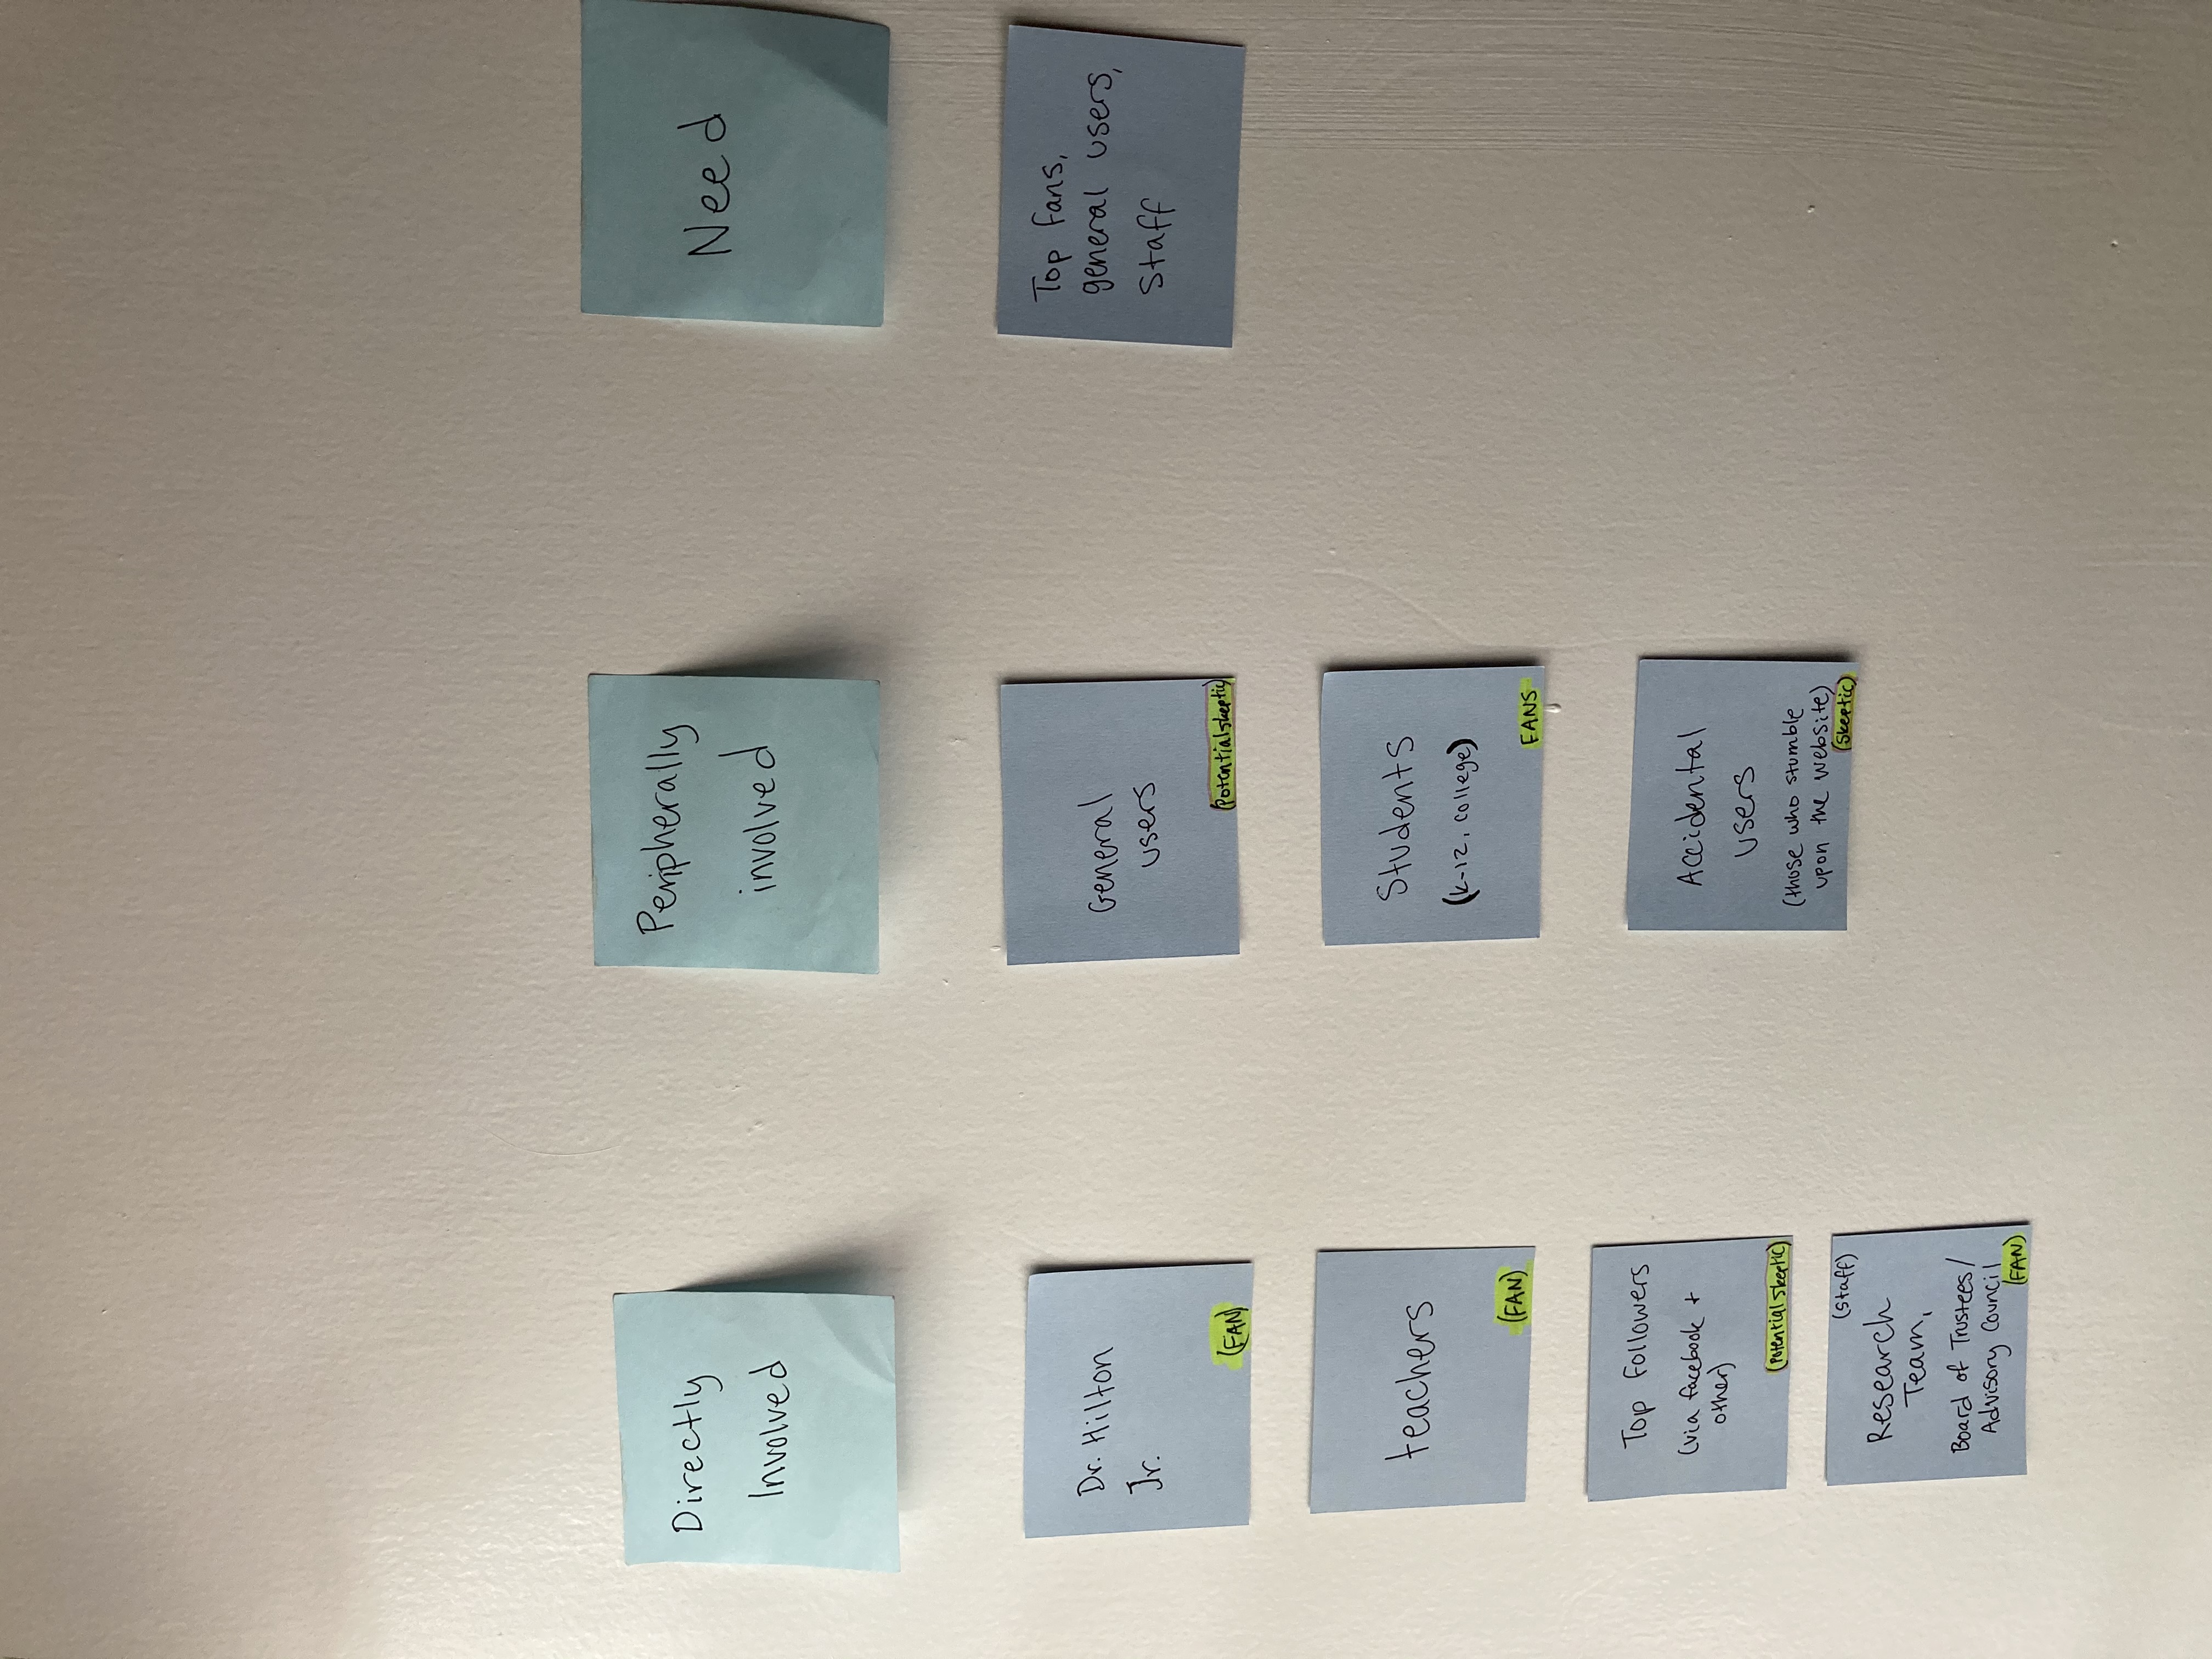 Directly
Involved
Dr. Hilton
Jr.
(FAN)
teachers
(FAN)
Top Followers
(via facebook +
other)
(Potential Skeptic)
(Staff)
Research
Team,
Board of Trustees/
Advisory Council
(FAN)
Peripherally
involved
General
users
(Potential skeptic)
Students
(K-12, college)
FANS
Accidental
users
(those who stumble
upon the website)
(Skeptic)
Need
Top fans,
general users,
Staff